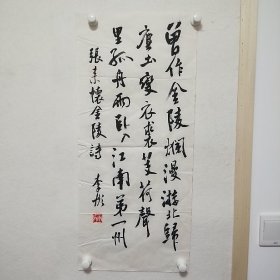 曾作金陵烂漫游北归
尘土变衣裘芰荷声
里孤舟雨卧入江南第一州
張耒懷金陵詩 李彤